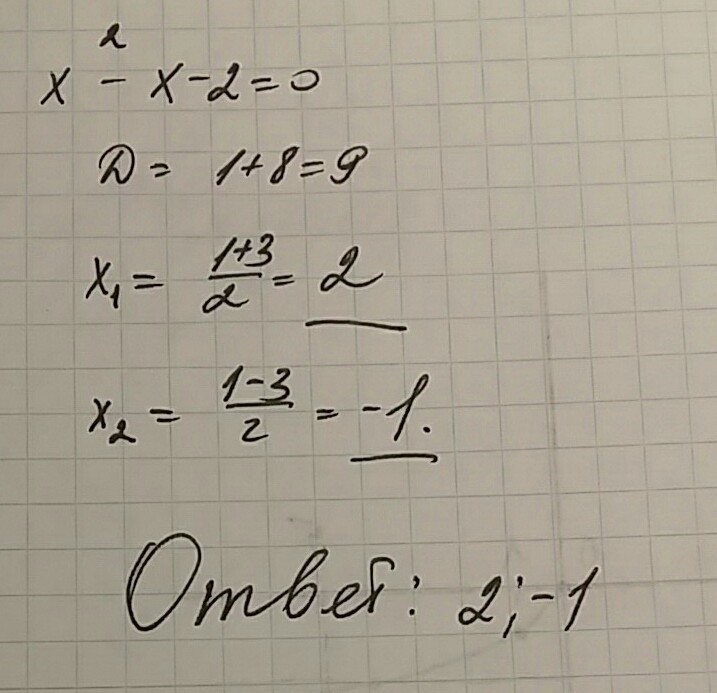 x² - x - 2 = 0
D = 1 + 8 = 9
x₁ = (1+3)/2 = 2
x₂ = (1-3)/2 = -1.
Ответ: 2; -1